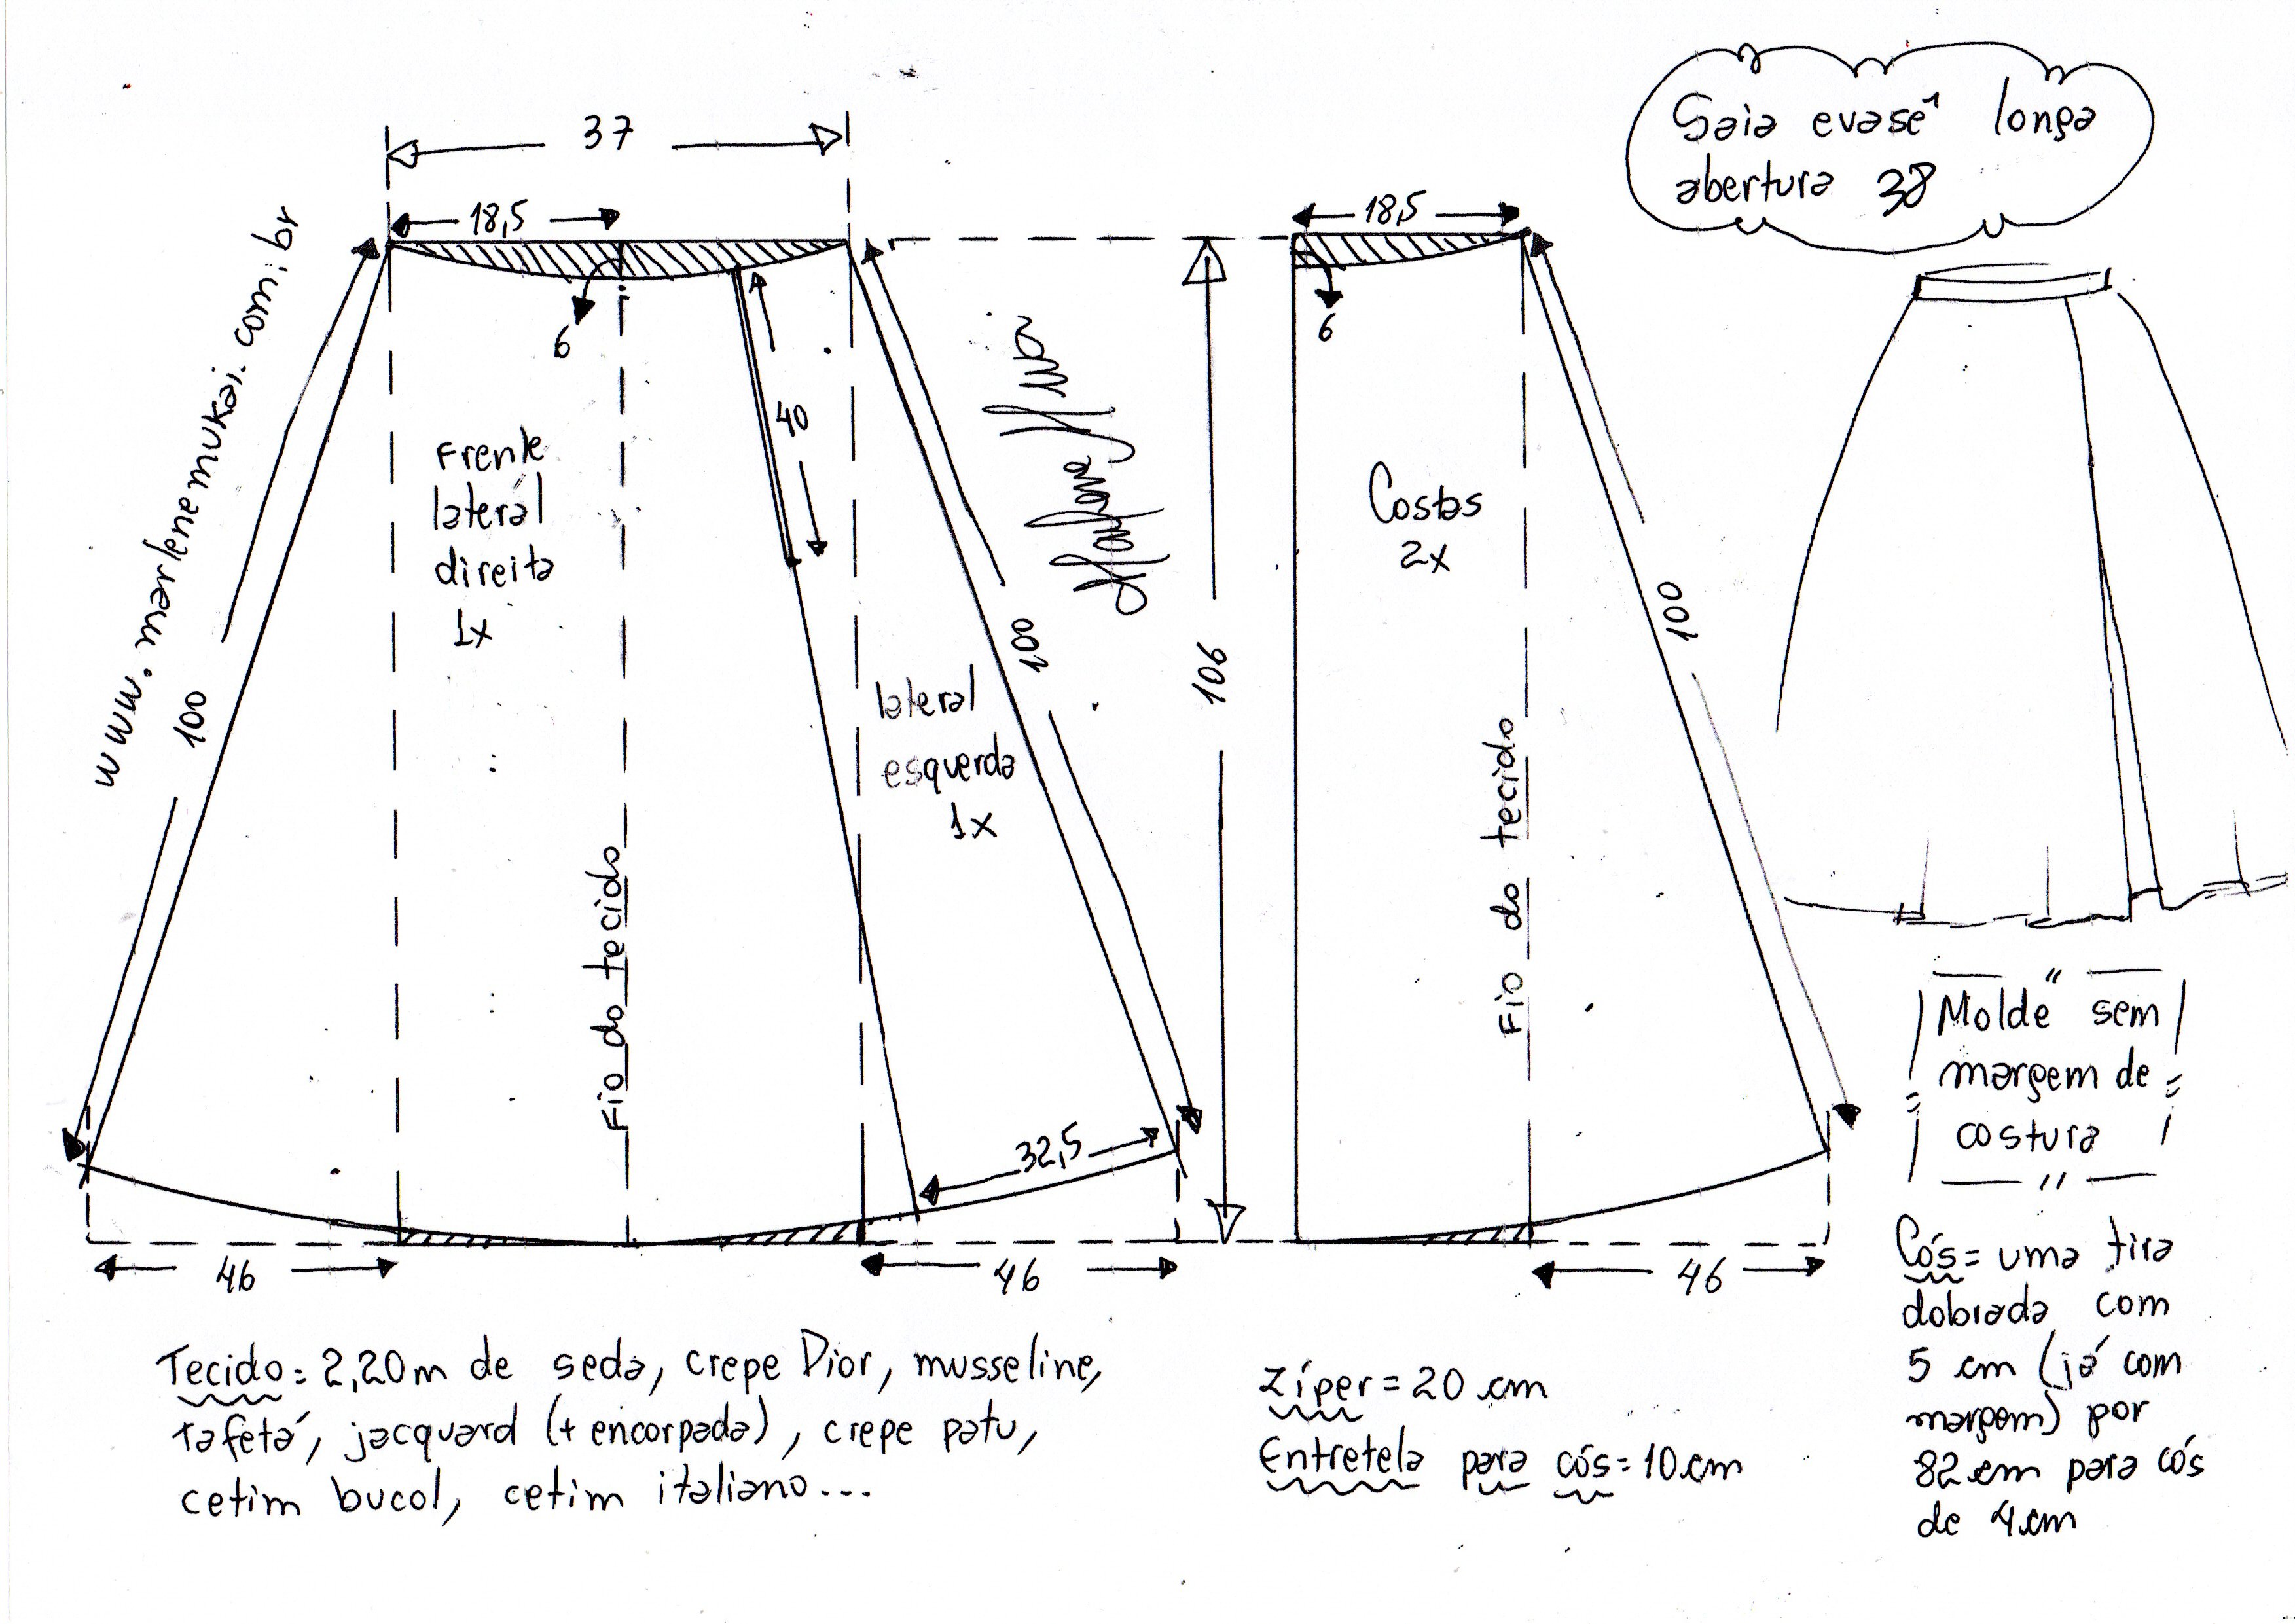 Saia evasê longa
abertura 38
37
18,5
18,5
6
6
www.marlenemukai.com.br
40
Frente
lateral
direita
1x
Costas
2x
100
100
100
106
lateral
esquerda
1x
Fio do tecido
Fio do tecido
32,5
46
46
46
"
Molde sem
margem de
costura
"
Cós = uma tira
dobrada com
5 cm (já com
margem) por
82 cm para cós
de 4 cm
Tecido = 2,20m de seda, crepe Dior, musseline,
tafetá, jacquard (+ encorpada), crepe patu,
cetim bucol, cetim italiano...
zíper = 20 cm
Entretela para cós = 10 cm